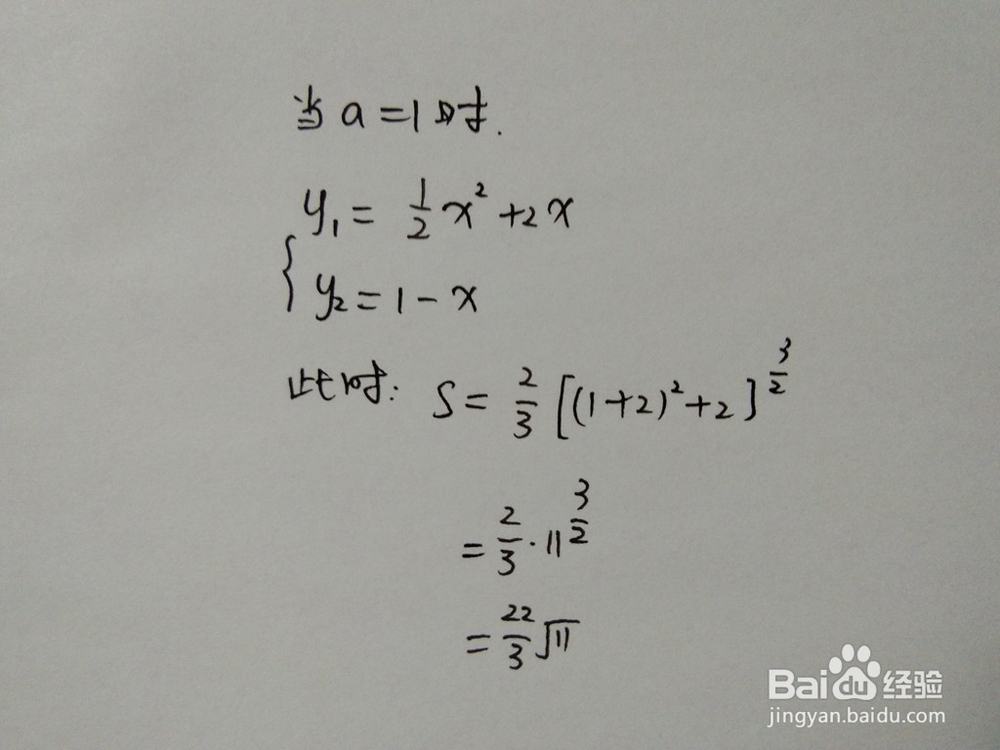 当 a=1时.
y₁ = 1/2 x² +2x
{ y₂ = 1 - x
此时: S = 2/3 [(1+2)²+2]^(3/2)
= 2/3 · 11^(3/2)
= 22/3 √11
Baidu 经验
jingyan.baidu.com